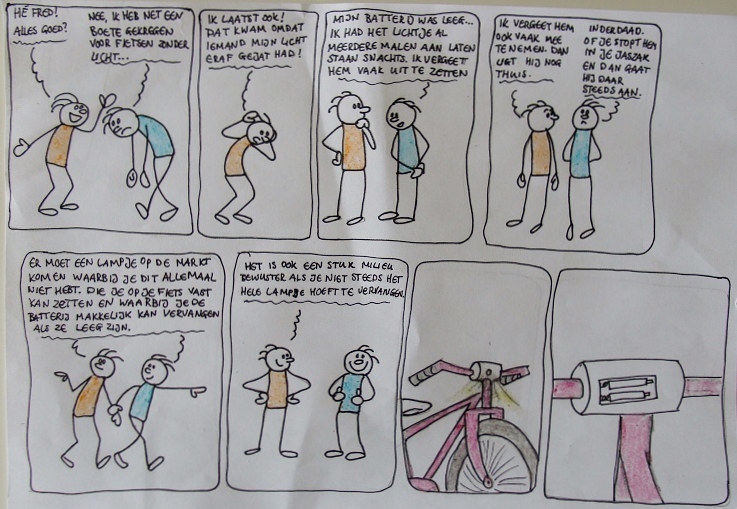 HÉ FRED!
ALLES GOED?
NEE, IK HEB NET EEN
BOETE GEKREGEN
VOOR FIETSEN ZONDER
LICHT...
IK LAATST OOK!
DAT KWAM OMDAT
IEMAND MIJN LICHT
ERAF GEJAT HAD!
MIJN BATTERIJ WAS LEEG...
IK HAD HET LICHTJE AL
MEERDERE MALEN AAN LATEN
STAAN SNACHTS. IK VERGEET
HEM VAAK UIT TE ZETTEN
IK VERGEET HEM
OOK VAAK MEE
TE NEMEN. DAN
LIGT HIJ NOG
THUIS.
INDERDAAD.
OF JE STOPT HEM
IN JE JASZAK
EN DAN GAAT
HIJ DAAR
STEEDS AAN.
ER MOET EEN LAMPJE OP DE MARKT
KOMEN WAARBIJ JE DIT ALLEMAAL
NIET HEBT. DIE JE OP JE FIETS VAST
KAN ZETTEN EN WAARBIJ JE DE
BATTERIJ MAKKELIJK KAN VERVANGEN
ALS ZE LEEG ZIJN.
HET IS OOK EEN STUK MILIEU
BEWUSTER ALS JE NIET STEEDS HET
HELE LAMPJE HOEFT TE VERVANGEN.